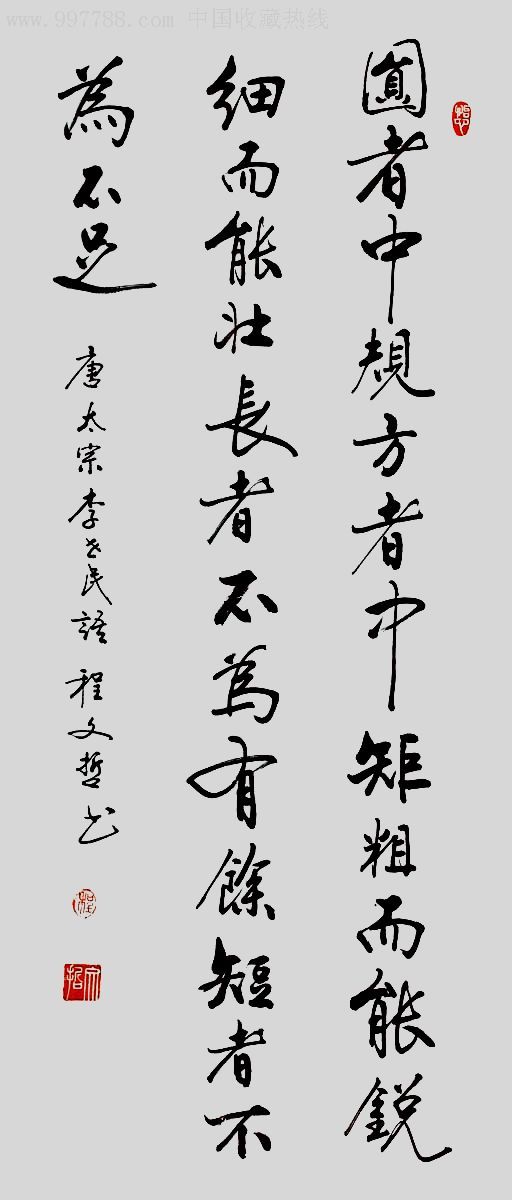 www.997788.com 中国收藏热线
圓者中規方者中矩粗而能銳
細而能壯長者不為有餘短者不
為不足
唐太宗李世民語 程文哲书